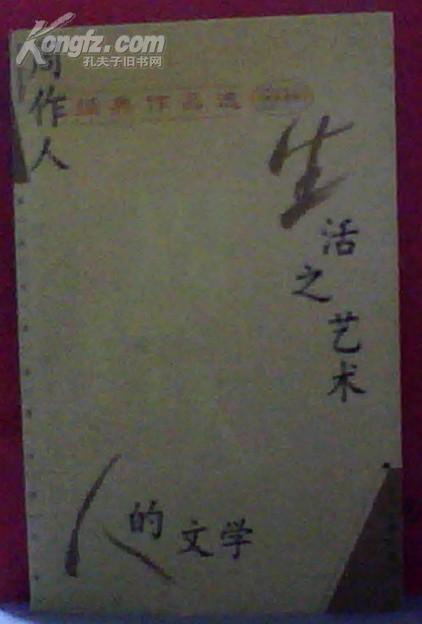 Kongfz.com
孔夫子旧书网
周作人
经典作品选
生活之艺术
人的文学